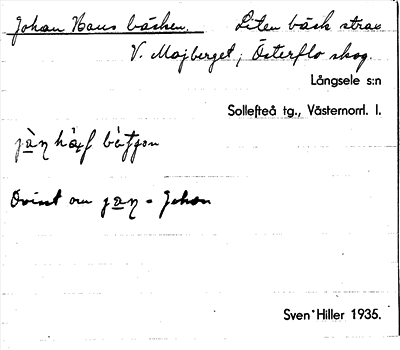 Johan Hans bäcken. Liten bäck strax
V. Majberget, Österflo skog.
Långsele s:n
Sollefteå tg., Västernorrl. l.
Ovisst om jan = Johan
Sven Hiller 1935.